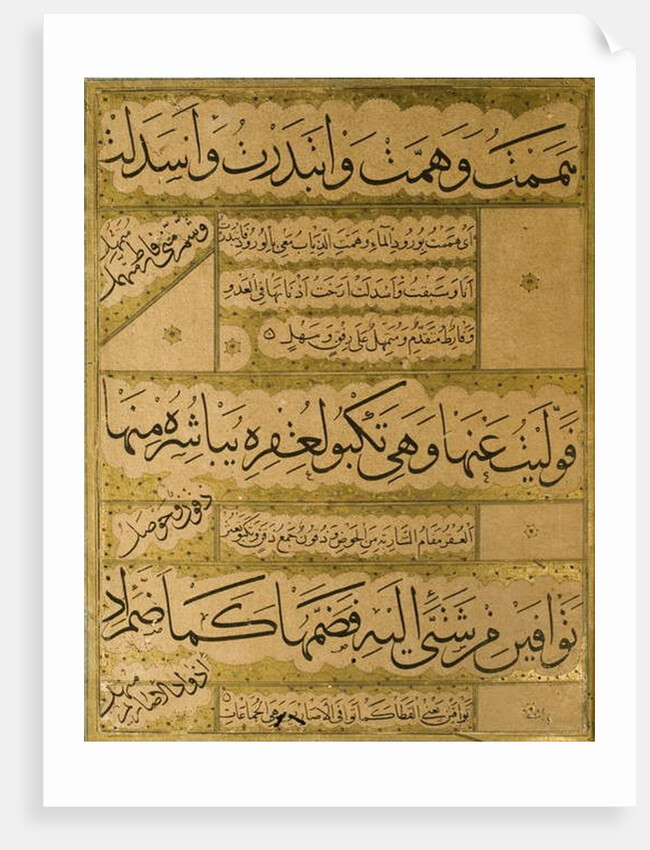 هَمَمْتُ وَهَمَّتْ وَابْتَدَرْتُ وَأَسْدَلَتْ
وَشَمَّرَ مِنِّي فَارِطٌ مُتَمَهِّلُ
اي هممت بورود الماء وهمت الذياب معي بالورود فابتدرت
انا وسبقت واسدلت ارخت اذنابها في العدو
وفارط متقدم ومتمهل على رفق وسهل
فَوَلَّيْتُ عَنْهَا وَهْيَ تَكْبُو لِعُقْرِهِ يُبَاشِرُهُ مِنْهَا
ذقون وحوصل
العقر مقام الشاربة من الحوض وذقون جمع ذقن وتكبو تعثر
تَوَافَيْنَ مِنْ شَتَّى إِلَيْهِ فَضَمَّهَا كَمَا ضَمَّ
أذواد الأصاريم منهل
توافين يعني القطا كما توافى الاصاريم وهي الجماعات